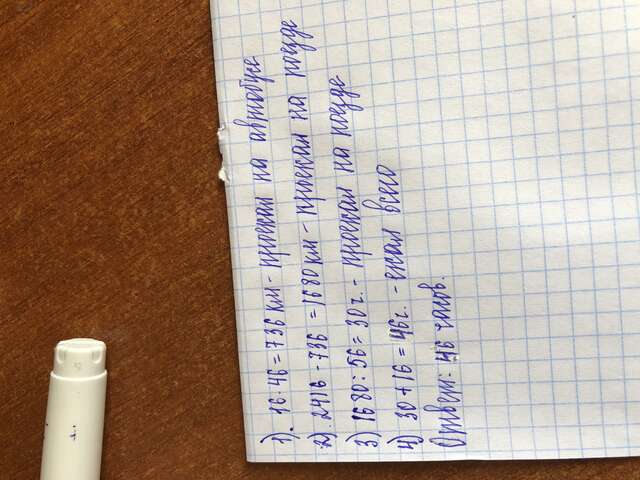 1). 16·46=736 км - проехал на автобусе
2). 2416 - 736 = 1680 км - проехал на поезде
3) 1680:56=30ч. - проехал на поезде
4) 30+16=46ч. - ехал всего
Ответ: 46 часов.